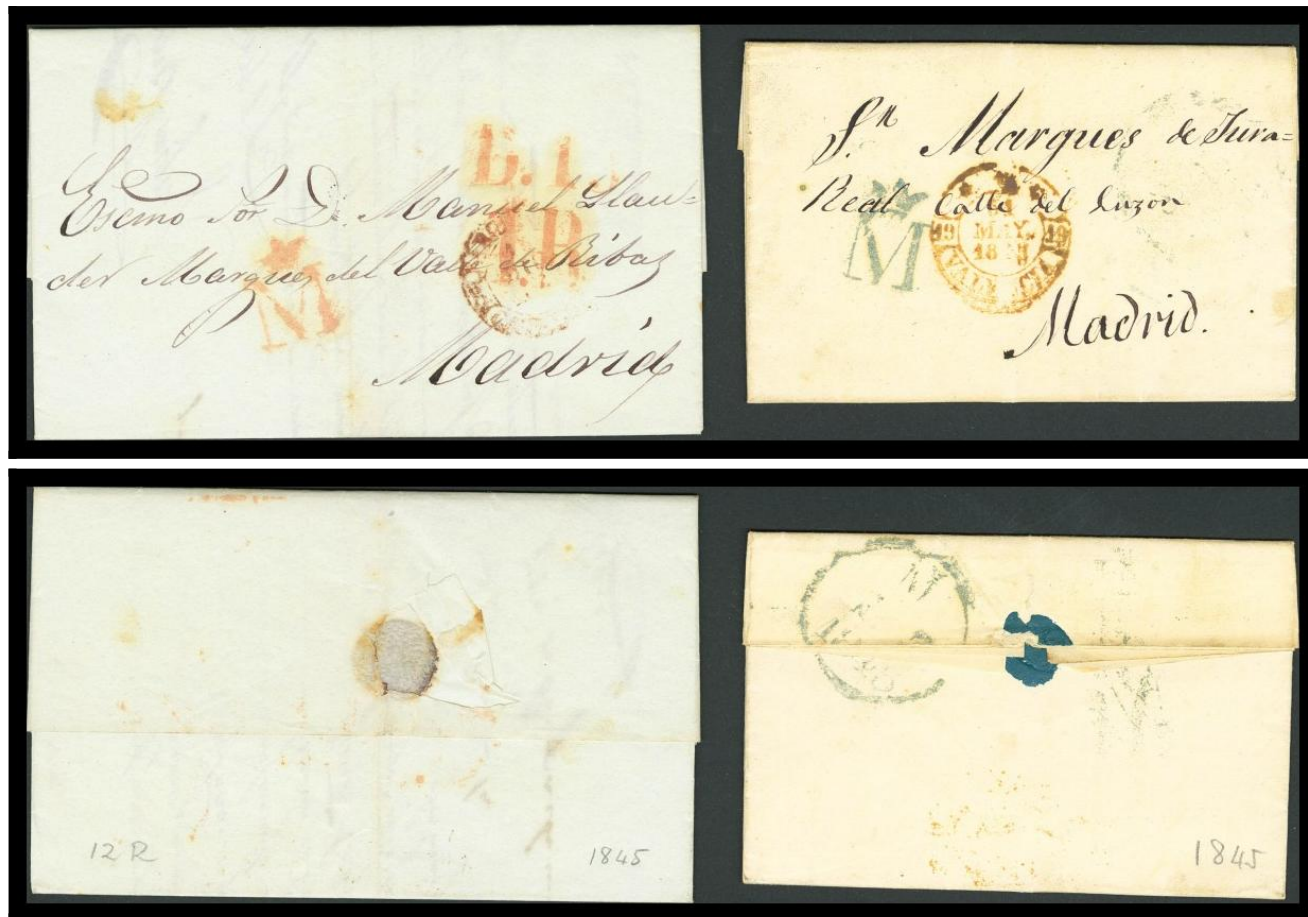 Esemo Sor D. Manuel Llau=
der Marques del Valle de Ribas
Madrid
M
Sn Marques de Jura=
Real Calle del Luzon
Madrid.
M
19 MAY. 19
VALENCIA
12 R
1845
1845